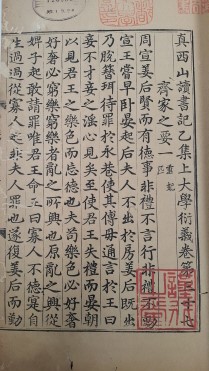 真西山讀書記乙集上大學衍義卷第三十七
齊家之要一 重妃匹
周宣姜后賢而有德事非禮不言行非禮不動
宣王嘗早卧晏起后夫人不出於房姜后既出
乃脫簪珥待罪於永巷使其傅母通言於王曰
妾不才妾之淫心見矣至使君王失禮而晏朝
以見君王之樂色而忘德也夫苟樂色必好奢
好奢必窮樂窮樂者亂之所興也原亂之興從
婢子起敢請罪唯君王命王曰寡人不德寔自
生過過從寡人起非夫人罪也遂復姜后而勤